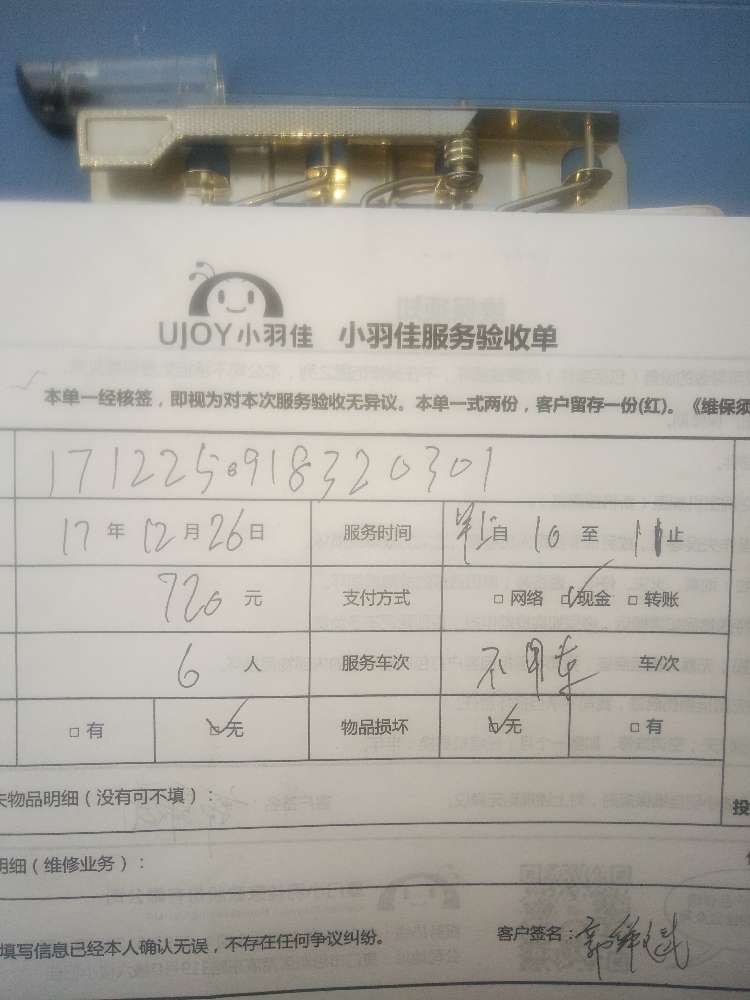 UJOY小羽佳 小羽佳服务验收单
本单一经核签，即视为对本次服务验收无异议。本单一式两份，客户留存一份(红)。《维保须
1712250918320301
17年12月26日 服务时间 早上自10至11止
720元 支付方式 □网络 ☑现金 □转账
6人 服务车次 不用车 车/次
□有 ☑无 物品损坏 ☑无 □有
失物品明细（没有可不填）：
投
明细（维修业务）：
填写信息已经本人确认无误，不存在任何争议纠纷。 客户签名：